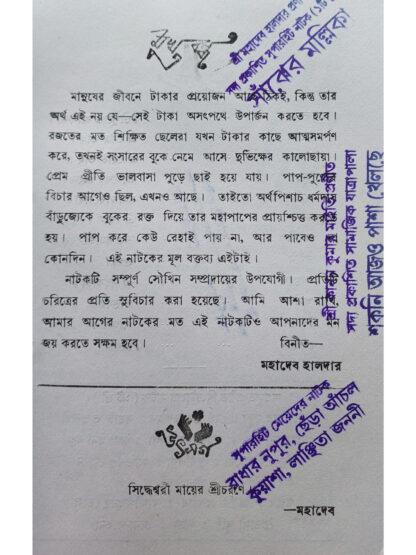 মুখবন্ধ
মানুষের জীবনে টাকার প্রয়োজন আছে ঠিকই, কিন্তু তার
অর্থ এই নয় যে—সেই টাকা অসৎপথে উপার্জন করতে হবে।
রজতের মত শিক্ষিত ছেলেরা যখন টাকার কাছে আত্মসমর্পণ
করে, তখনই সংসারের বুকে নেমে আসে দুর্ভিক্ষের কালোছায়া।
প্রেম প্রীতি ভালবাসা পুড়ে ছাই হয়ে যায়। পাপ-পুণ্যের
বিচার আগেও ছিল, এখনও আছে। তাইতো অর্থপিশাচ ধর্মদাস
বাঁড়ুজ্যেকে বুকের রক্ত দিয়ে তার মহাপাপের প্রায়শ্চিত্ত করতে
হয়। পাপ করে কেউ রেহাই পায় না, আর পাবেও না
কোনদিন। এই নাটকের মূল বক্তব্য এইটাই।
নাটকটি সম্পূর্ণ সৌখিন সম্প্রদায়ের উপযোগী। প্রতিটি
চরিত্রের প্রতি সুবিচার করা হয়েছে। আমি আশা রাখি,
আমার আগের নাটকের মত এই নাটকটিও আপনাদের মন
জয় করতে সক্ষম হবে। বিনীত—
মহাদেব হালদার
উৎসর্গ
সিদ্ধেশ্বরী মায়ের শ্রীচরণে।
—মহাদেব
শ্রী মহাদেব হালদার
সদ্য প্রকাশিত সুপারহিট নাটক
সাঁঝের মল্লিকা
সদ্য প্রকাশিত সামাজিক যাত্রাপালা
শকুনি আজও পাশা খেলছে
সুপারহিট মেয়েদের নাটক
রাধার নুপুর, ছেঁড়া আঁচল
কুয়াশা, লাঞ্ছিতা জননী